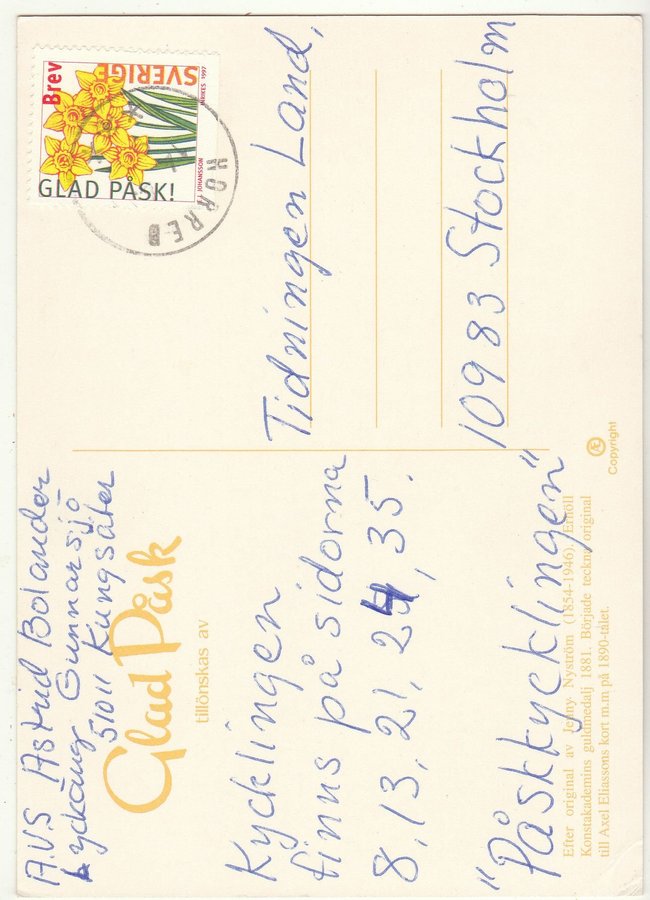 A.V.S Astrid Bolander
Lyckäng Gunnarsjö
51011 Kungsäter
Glad Påsk
tillönskas av
Kycklingen
finns på sidorna
8, 13, 21, 24, 35.
"Påskkycklingen"
Efter original av Jenny Nyström (1854-1946). Erhöll
Konstakademins guldmedalj 1881. Började teckna original
till Axel Eliassons kort m.m på 1890-talet.
Brev
SVERIGE
INRIKES 1997
L. JOHANSSON
GLAD PÅSK!
HORRED
Tidningen Land,
10983 Stockholm
Æ
Copyright